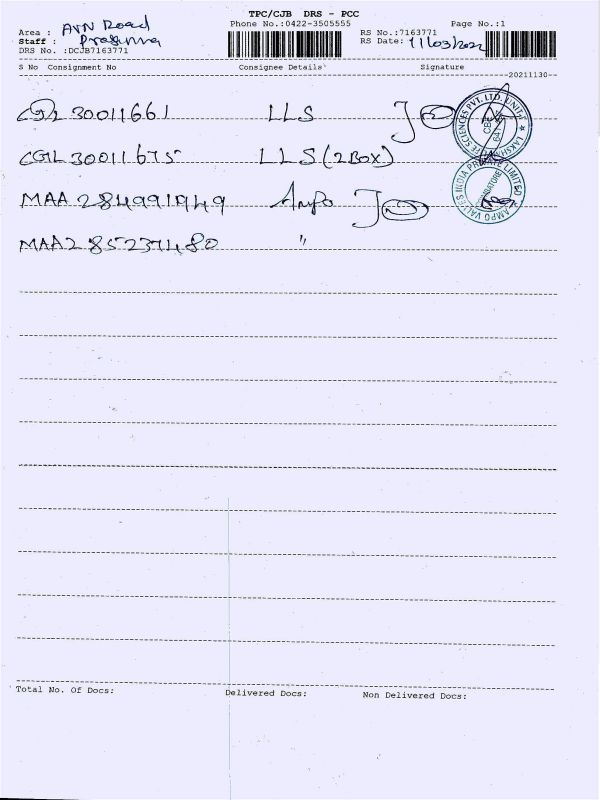 TPC/CJB DRS - PCC
Phone No.:0422-3505555
Page No.:1
Area : AVN Road
Staff : Prasanna
DRS No. :DCJB7163771
RS No.:7163771
RS Date: 11/03/2022
S No Consignment No Consignee Details Signature
--20211130--
CGL 30011661 LLS
CGL 30011675 LLS (2 Box)
MAA 284991949 Ampo
MAA 285237480 "
LIFE SCIENCES PVT. LTD. UNIT
LAKSHMI
AMPO VALVES INDIA PRIVATE LIMITED
COIMBATORE
Total No. Of Docs: Delivered Docs: Non Delivered Docs: